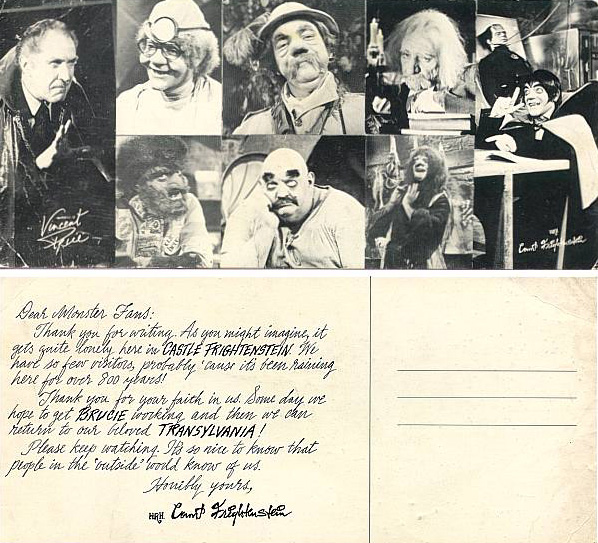 Vincent
Price
HRH.
Count Frightenstein
Dear Monster Fans:
Thank you for writing. As you might imagine, it
gets quite lonely here in CASTLE FRIGHTENSTEIN. We
have so few visitors, probably 'cause it's been raining
here for over 800 years!
Thank you for your faith in us. Some day we
hope to get BRUCIE working and then we can
return to our beloved TRANSYLVANIA!
Please keep watching. It's so nice to know that
people in the "outside" world know of us.
Horribly yours,
HRH. Count Frightenstein